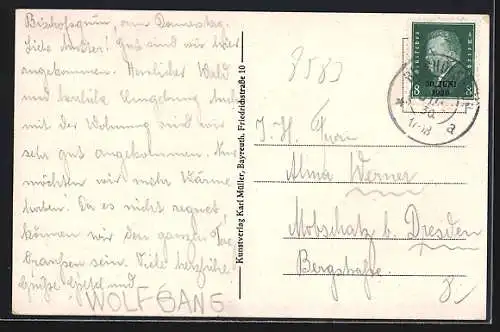 Bischofsgrün, am Donnerstag.
Liebe Mutter! Gut sind wir hier
angekommen. Herrlicher Wald
und herrliche Umgebung. Auch
mit der Wohnung sind wir
sehr gut angekommen. Nun
möchten wir mehr Wärme
haben! Da es nicht regnet
können wir den ganzen Tag
draußen sein. Viele herzliche
Grüße und
WOLFGANG
Kunstverlag Karl Müller, Bayreuth, Friedrichstraße 10
8583
Deutsches Reich
30. JUNI
1930
8 8
17-18
a
Alma Werner
Mobschatz b. Dresden
Bergstraße.